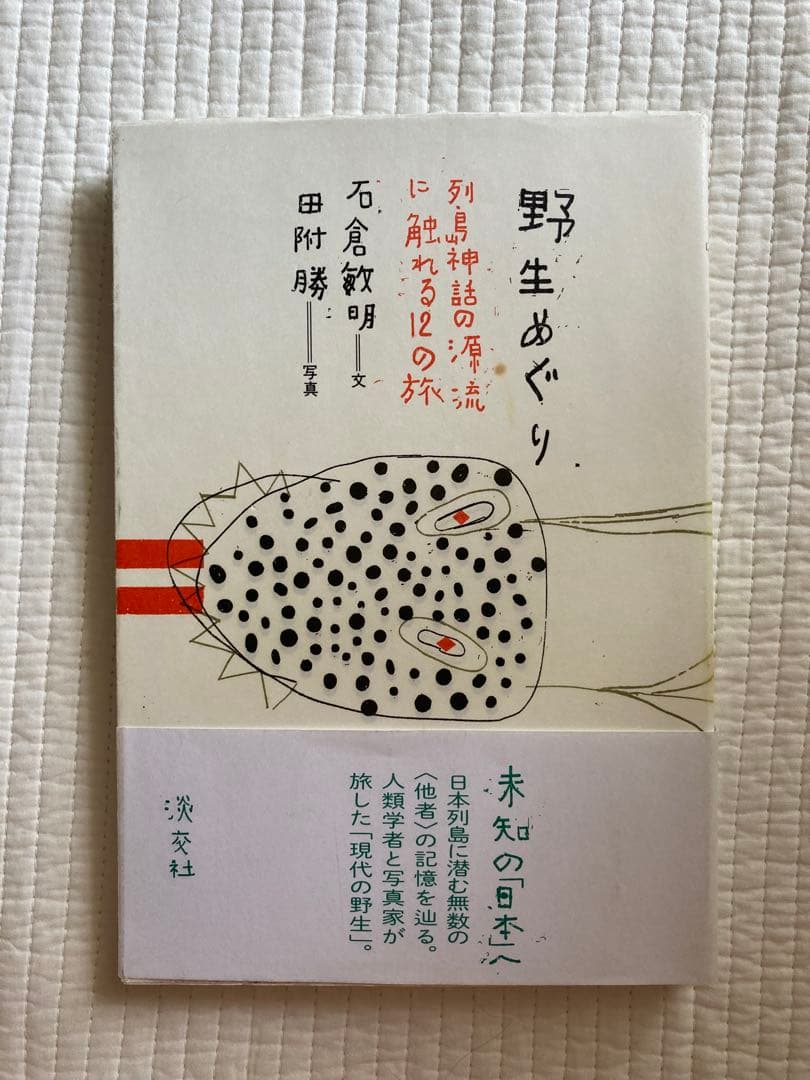 野生めぐり
列島神話の源流
に触れる12の旅
石倉敏明=文
田附勝=写真
未知の「日本」へ
日本列島に潜む無数の
〈他者〉の記憶を辿る。
人類学者と写真家が
旅した「現代の野生」。
淡交社